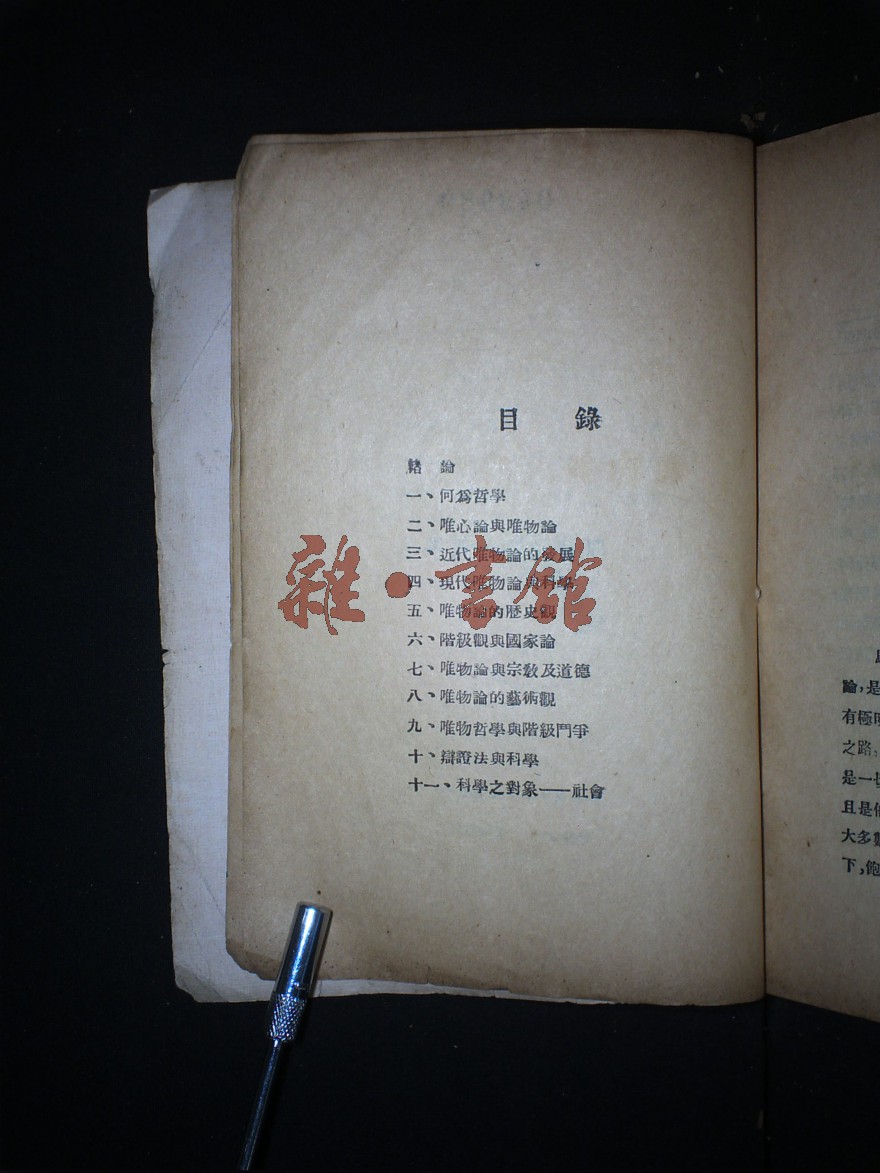 目 錄
緒 論
一、何爲哲學
二、唯心論與唯物論
三、近代唯物論的發展
四、現代唯物論與科學
五、唯物論的歷史觀
六、階級觀與國家論
七、唯物論與宗敎及道德
八、唯物論的藝術觀
九、唯物哲學與階級鬥爭
十、辯證法與科學
十一、科學之對象——社會
雜·書館
論，是
有極
之路，
是一
且是
大多
下，飽